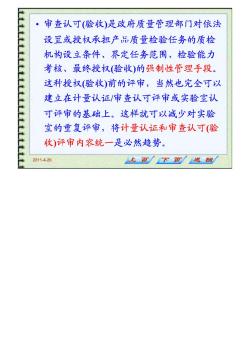 • 审查认可(验收)是政府质量管理部门对依法
设置或授权承担产品质量检验任务的质检
机构设立条件、界定任务范围、检验能力
考核、最终授权(验收)的强制性管理手段。
这种授权(验收)前的评审，当然也完全可以
建立在计量认证/审查认可评审或实验室认
可评审的基础上。这样就可以减少对实验
室的重复评审，将计量认证和审查认可(验
收)评审内容统一是必然趋势。
2011-4-20
上页 下页 返回